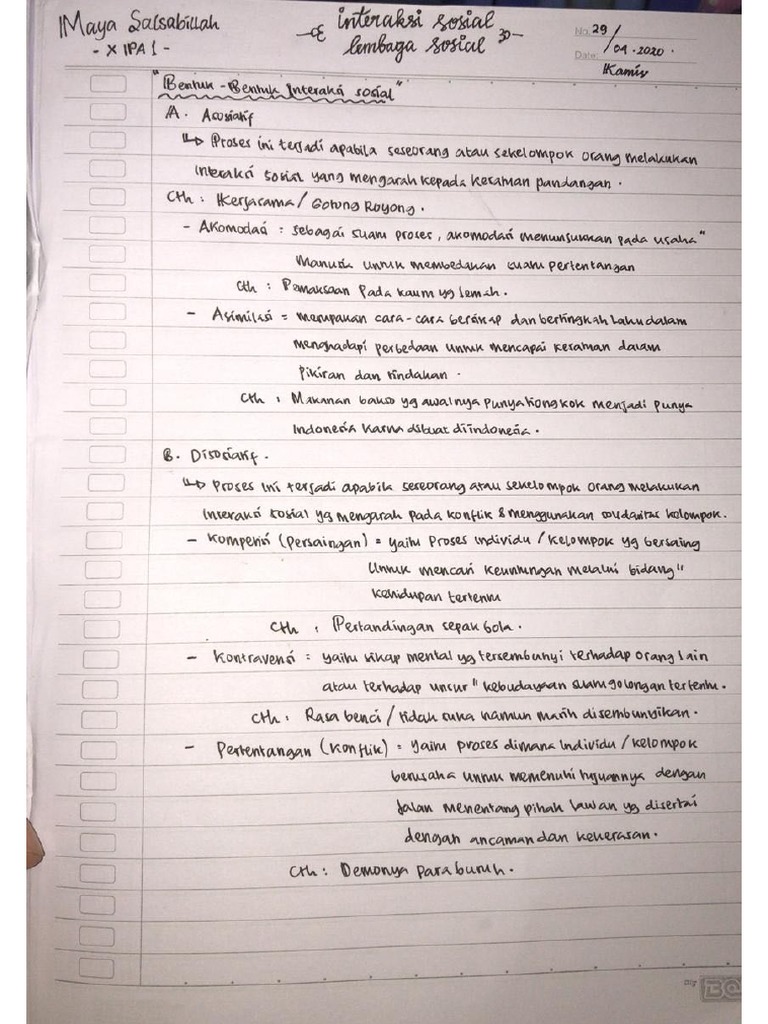 Maya Salsabillah
- X IPA 1 -
interaksi sosial
lembaga sosial
No. 29/
Date: 01.2020.
Kamis
"Bentuk-Bentuk Interaksi sosial"
A. Asosiatif
↳ Proses ini terjadi apabila seseorang atau sekelompok orang melakukan
interaksi sosial yang mengarah kepada kesatuan pandangan.
Cth : Kerjasama/ Gotong Royong.
- Akomodasi : sebagai suatu proses, akomodasi menunjukkan pada usaha"
Manusia untuk membedakan suatu pertentangan
Cth : Pemaksaan pada kaum yg lemah.
- Asimilasi = merupakan cara-cara bersikap dan bertingkah laku dalam
menghadapi perbedaan untuk mencapai kesatuan dalam
Pikiran dan tindakan.
Cth : Makanan bakso yg awalnya punya tiongkok menjadi punya
Indonesia karna dibuat diindonesia.
B. Disosiatif.
↳ Proses ini terjadi apabila seseorang atau sekelompok orang melakukan
interaksi sosial yg mengarah pada konflik & menggunakan solidaritas kelompok.
- Kompetisi (Persaingan) = yaitu Proses individu / kelompok yg bersaing
Untuk mencari keuntungan melalui bidang"
kehidupan tertentu
Cth : Pertandingan sepak bola.
- Kontravensi = yaitu sikap mental yg tersembunyi terhadap orang lain
atau terhadap unsur" kebudayaan suatu golongan tertentu.
Cth : Rasa benci / tidak suka namun masih disembunyikan.
- Pertentangan (Konflik) = yaitu proses dimana individu / kelompok
berusaha untuk memenuhi tujuannya dengan
jalan menentang pihak lawan yg disertai
dengan ancaman dan kekerasan.
Cth : Demonya para buruh.